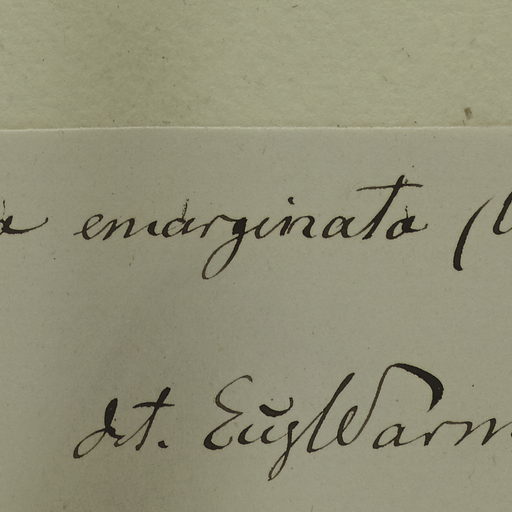 a emarginata (
det. Eug Warm